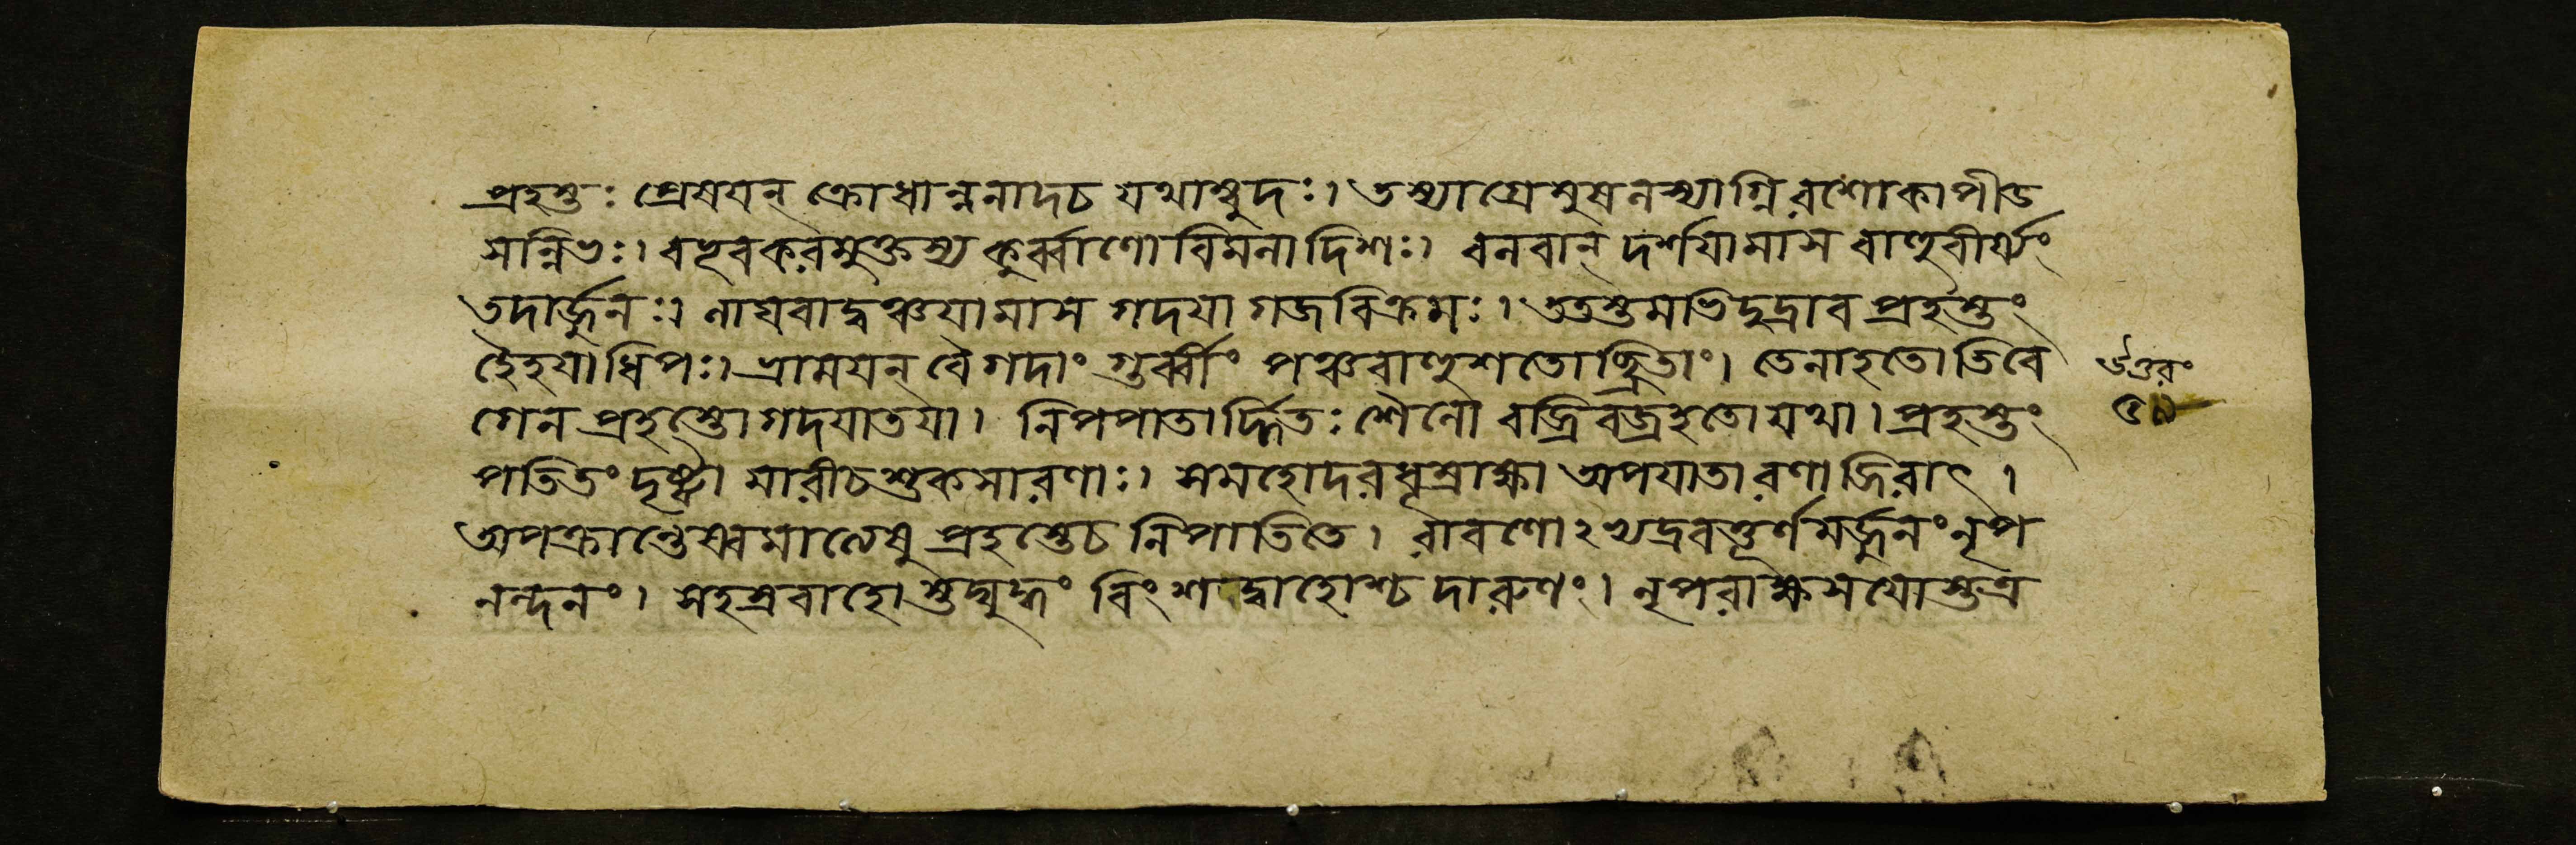 প্রহস্তঃ প্রেষয়ন্ ক্রোধান্ননাদচ যথাম্বুদঃ। তস্যাগ্রেমুষলস্যাগ্নিরশোকাপীড
সন্নিভঃ। বভূবকরমুক্তস্য কুর্ব্বাণো বিমনাদিশঃ। বলবান্ দর্শয়ামাস বাহুবীর্য্যং
তদার্জ্জুনঃ। লাঘবাদ্বঞ্চয়ামাস গদয়া গজবিক্রমঃ। ততস্তমভিদুদ্রাব প্রহস্তং
হৈহয়াধিপঃ। ভ্রাময়ন্ বৈ গদাং গুর্ব্বীং পঞ্চবাহুশতোচ্ছ্রিতাং। তেনাহতোতিবে
গেন প্রহস্তো গদয়াতয়া। নিপপাতার্দ্দিতঃ শৈলো বজ্রিবজ্রহতো যথা। প্রহস্তং
পতিতং দৃষ্ট্বা মারীচশুকসারণাঃ। সমহোদরধূম্রাক্ষা অপয়াতা রণাজিরাৎ।
অপক্রান্তেষ্বমাত্যেষু প্রহস্তেচ নিপাতিতে। রাবণোঽভ্যদ্রবত্তূর্ণমর্জ্জুনং নৃপ
নন্দনং। সহস্রবাহোস্তুদ্যুদ্ধং বিংশদ্বাহোশ্চ দারুণং। নৃপরাক্ষসয়োস্তত্র
উত্তরং